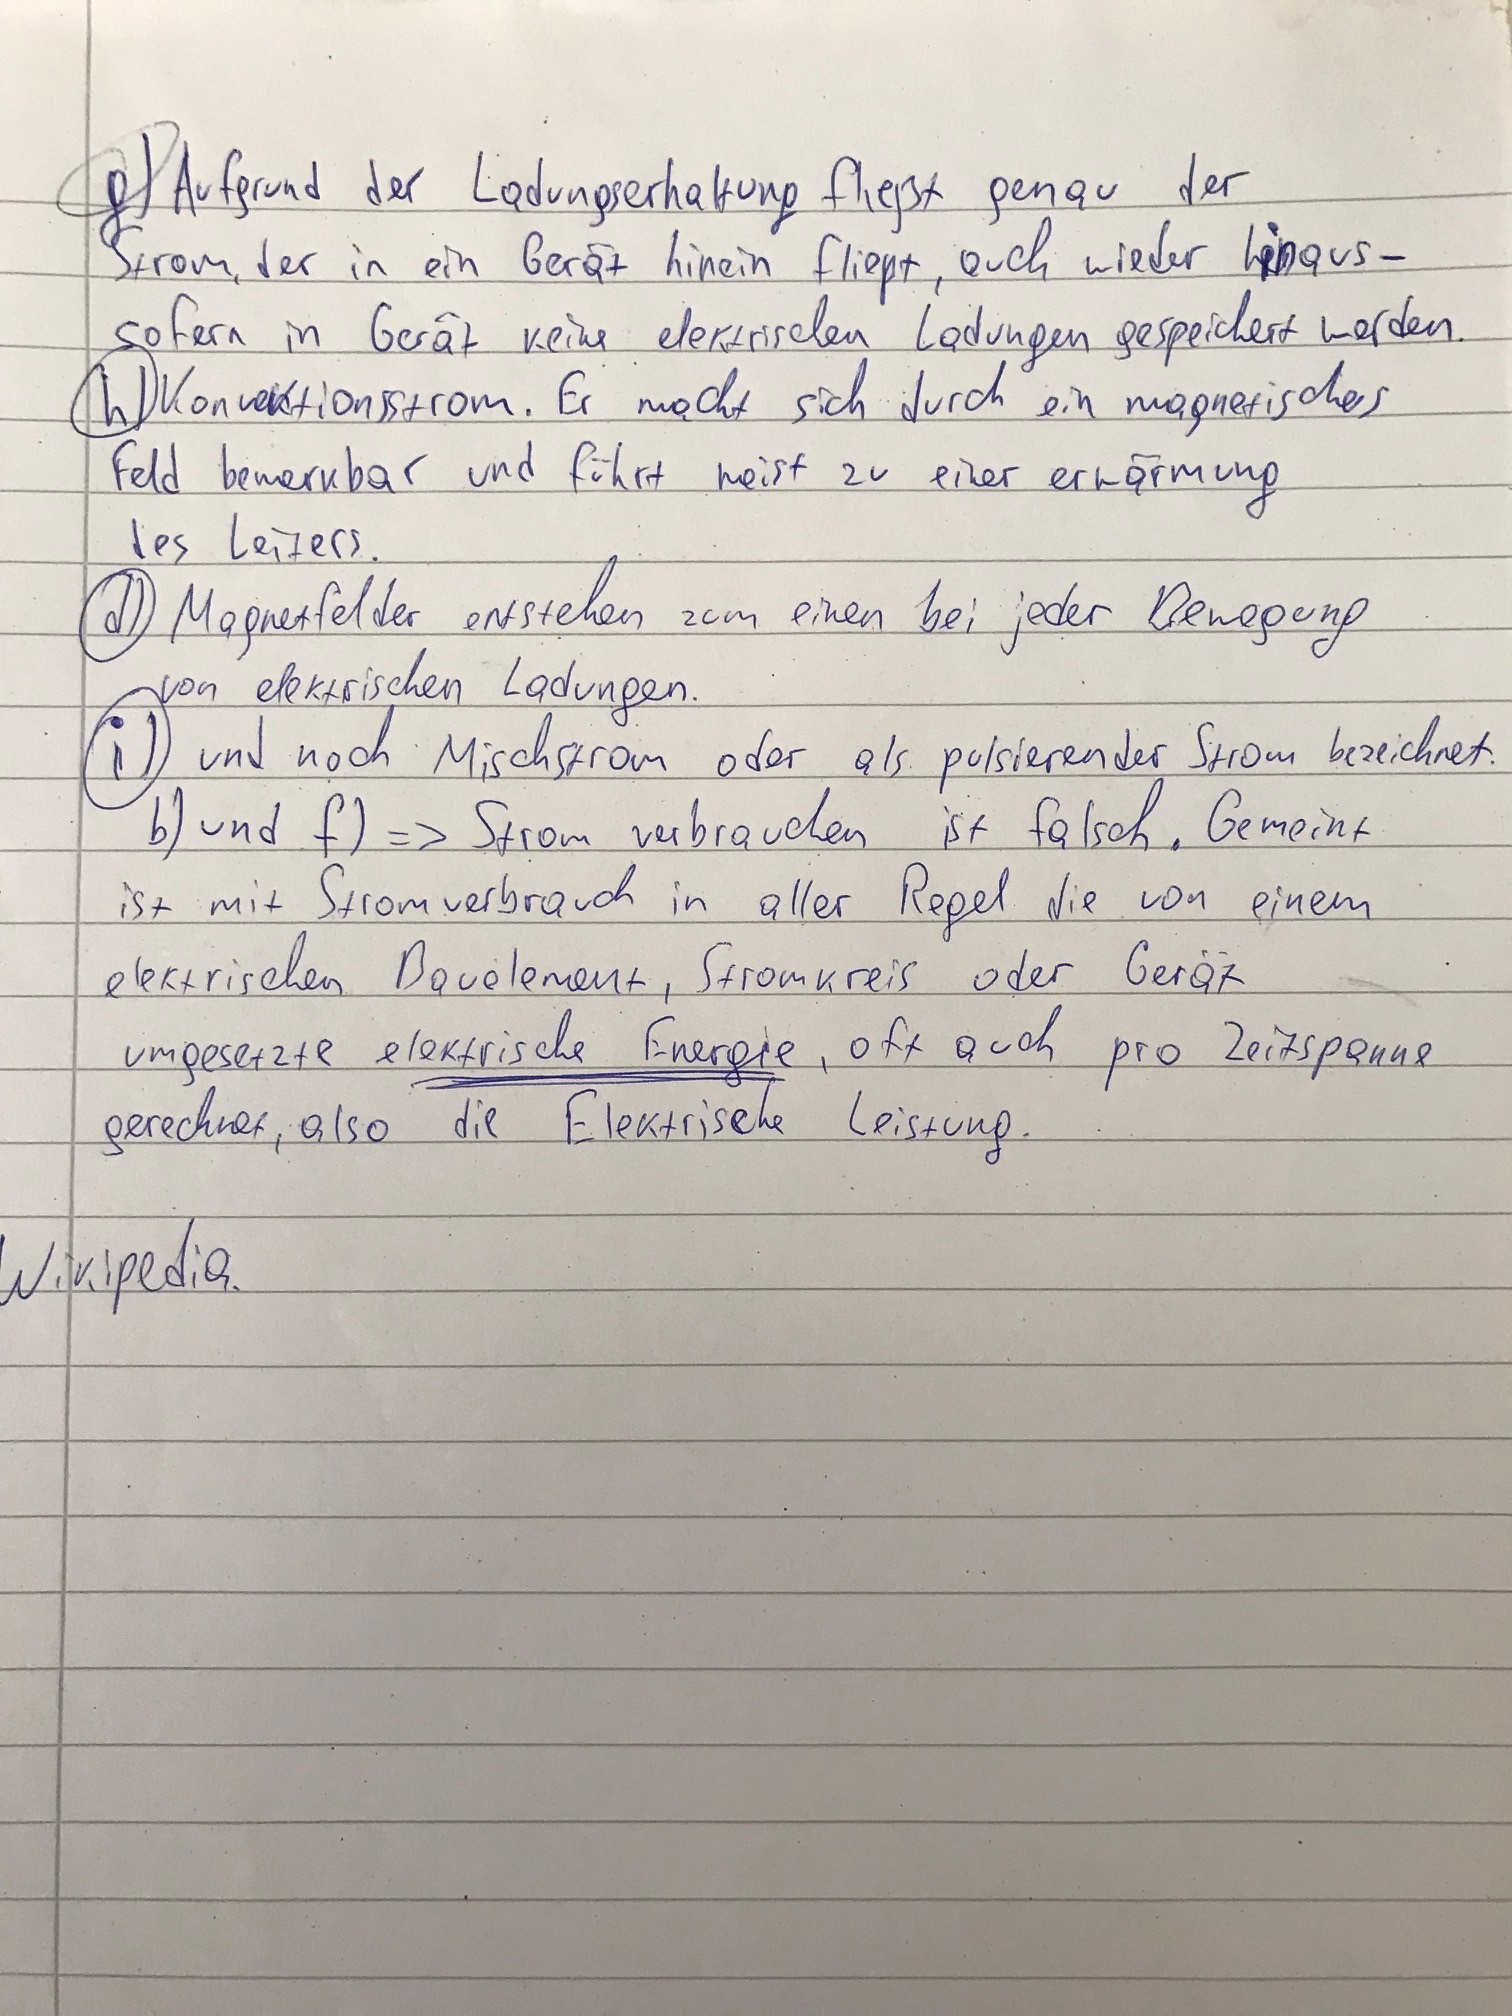 g) Aufgrund der Ladungserhaltung fließt genau der
Strom, der in ein Gerät hinein fließt, auch wieder hinaus -
sofern in Gerät keine elektrischen Ladungen gespeichert werden.
h) Konvektionsstrom. Er macht sich durch ein magnetisches
Feld bemerkbar und führt meist zu einer erwärmung
des Leiters.
d) Magnetfelder entstehen zum einen bei jeder Bewegung
von elektrischen Ladungen.
i) und noch Mischstrom oder als pulsierender Strom bezeichnet.
b) und f) => Strom verbrauchen ist falsch. Gemeint
ist mit Stromverbrauch in aller Regel die von einem
elektrischen Bauelement, Stromkreis oder Gerät
umgesetzte elektrische Energie, oft auch pro Zeitspanne
gerechnet, also die Elektrische Leistung.
Wikipedia.